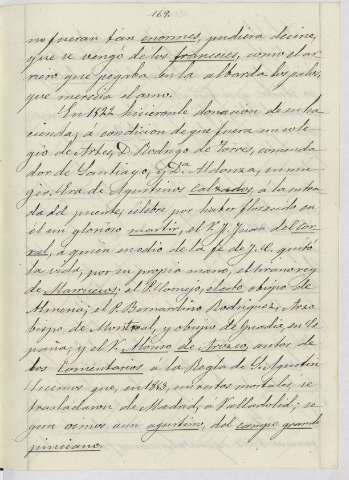 169.
no fueran tan enormes, pudiera decirse,
que se vengó de los franceses, como el ar-
riero, que pegaba en la albarda los palos,
que merecia el asno.
En 1522 hicieronle donacion de su ha-
cienda, a condicion de que fuera un cole-
gio de Artes, D. Rodrigo de Torres, comenda-
dor de Santiago, y D.ª Aldonza, su mu-
ger. Era de Agustinos Calzados, á la entra-
da del puente, célebre por haber florecido en
él un glorioso martir, el V. F. Juan del Cor-
ral, a quien en odio de la fe de J. C. quitó
la vida, por su propia mano, el tirano rey
de Marruecos; el P. Cornejo, electo obispo de
Almeria; el P. Bernardino Rodriguez, Arzo-
bispo de Monreal, y obispo de Guadix, en Es-
paña; y el V. Alonso de Orozco, autor de
los Comentarios á la Regla de S. Agustin
cuyos restos mortales, se
trasladaron de Madrid, á Valladolid; se-
gun oimos á un agustino, del campo grande
pinciano.